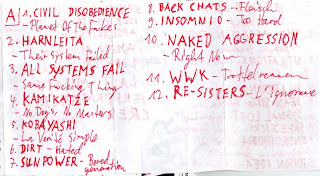 A) 1. CIVIL DISOBEDIENCE
- Planet Of The Fakes
2. HARNLEITA
- Their System Failed
3. ALL SYSTEMS FAIL
- Same Fucking Thing
4. KAMIKATZE
- No Dogs, No Masters
5. KOBAYASHI
- La Verité Simple
6. DIRT - Hated
7. SUNPOWER - Bored generation
8. BACK CHATS - Fleisch
9. INSOMNIO - Too Hard
10. NAKED AGGRESSION
- Right Now
11. WWK - Trottelreamen
12. RE-SISTERS - L'ignorance